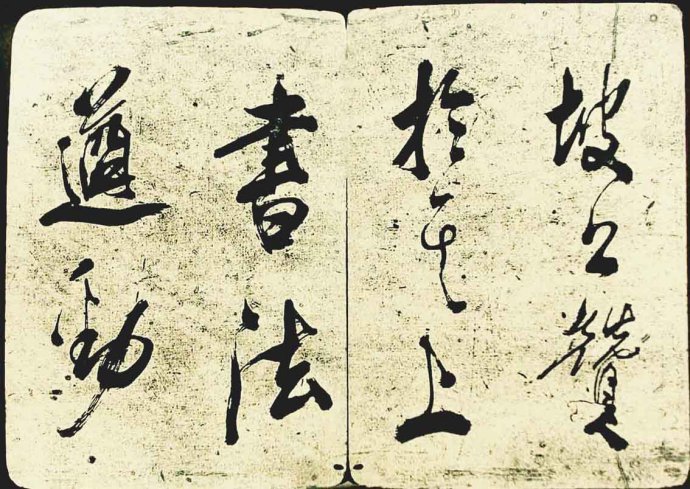 坡公贊
於其上
書法
遒勁